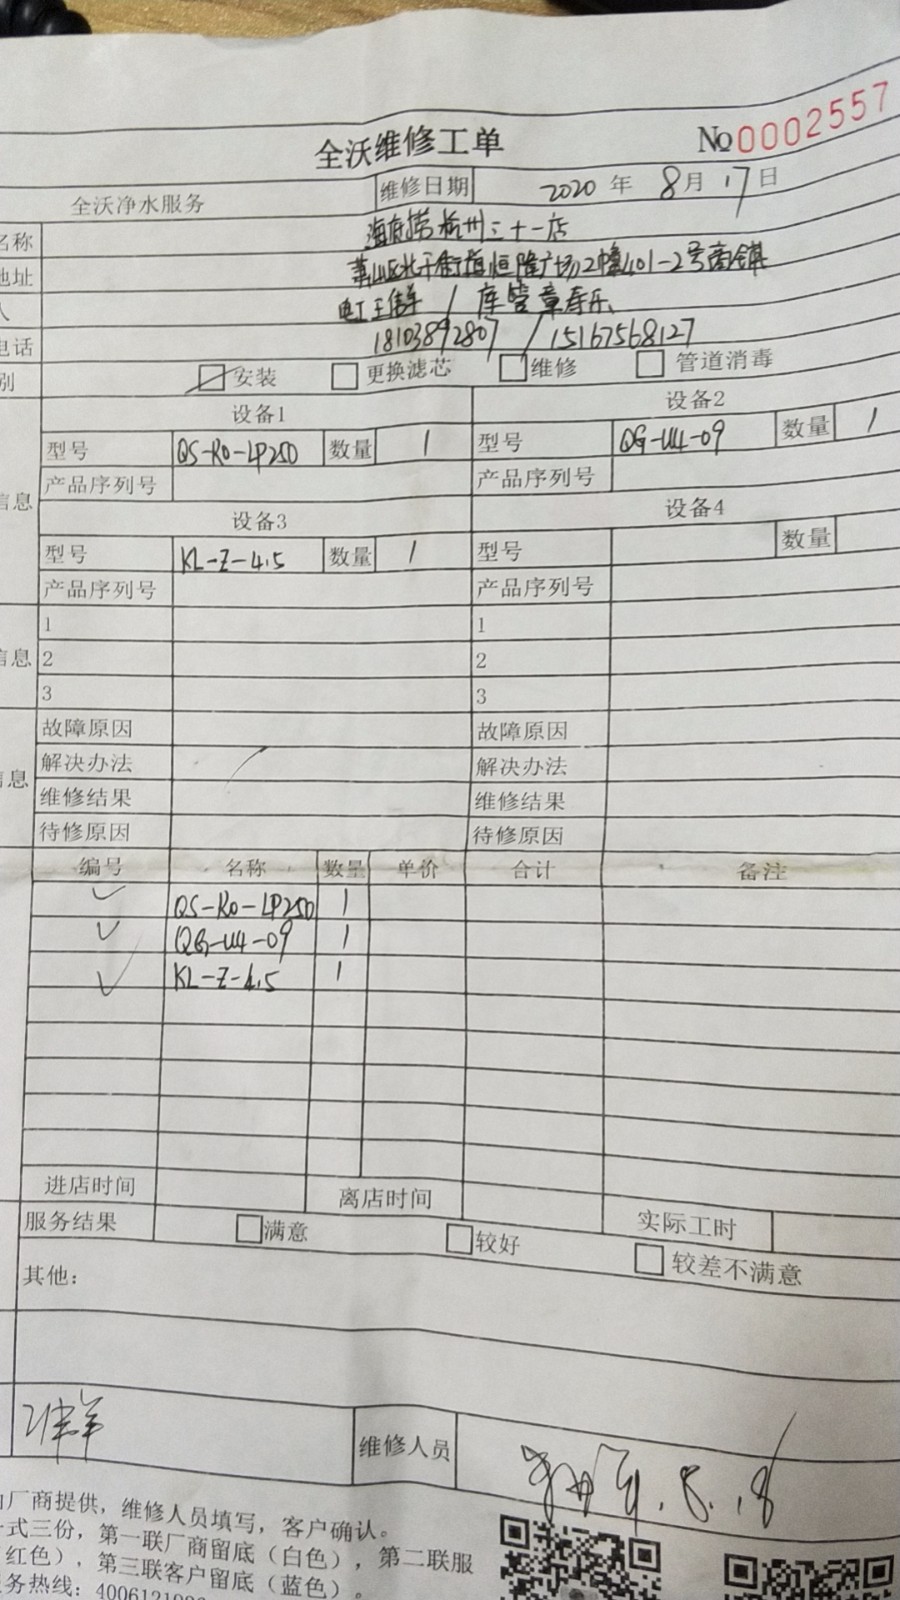 全沃维修工单
No0002557
全沃净水服务 维修日期 2020 年 8月 17日
名称 海底捞杭州三十一店
地址 萧山区北干街道恒隆广场2幢401-2号商铺
人 电工王伟羊 / 库管章寿乐
电话 18103892807 / 15167568127
别 安装 更换滤芯 维修 管道消毒
设备1 设备2
型号 QS-R0-LP250 数量 1 型号 QG-U4-09 数量 1
产品序列号 产品序列号
信息
设备3 设备4
型号 KL-Z-4.5 数量 1 型号 数量
产品序列号 产品序列号
1 1
信息 2 2
3 3
故障原因 故障原因
信息 解决办法 解决办法
维修结果 维修结果
待修原因 待修原因
编号 名称 数量 单价 合计 备注
✓ QS-R0-LP250 1
✓ QG-U4-09 1
✓ KL-Z-4.5 1
进店时间 离店时间
服务结果 满意 较好 较差不满意 实际工时
其他：
维修人员
厂商提供，维修人员填写，客户确认。
式三份，第一联厂商留底（白色），第二联服
红色），第三联客户留底（蓝色）。
务热线：